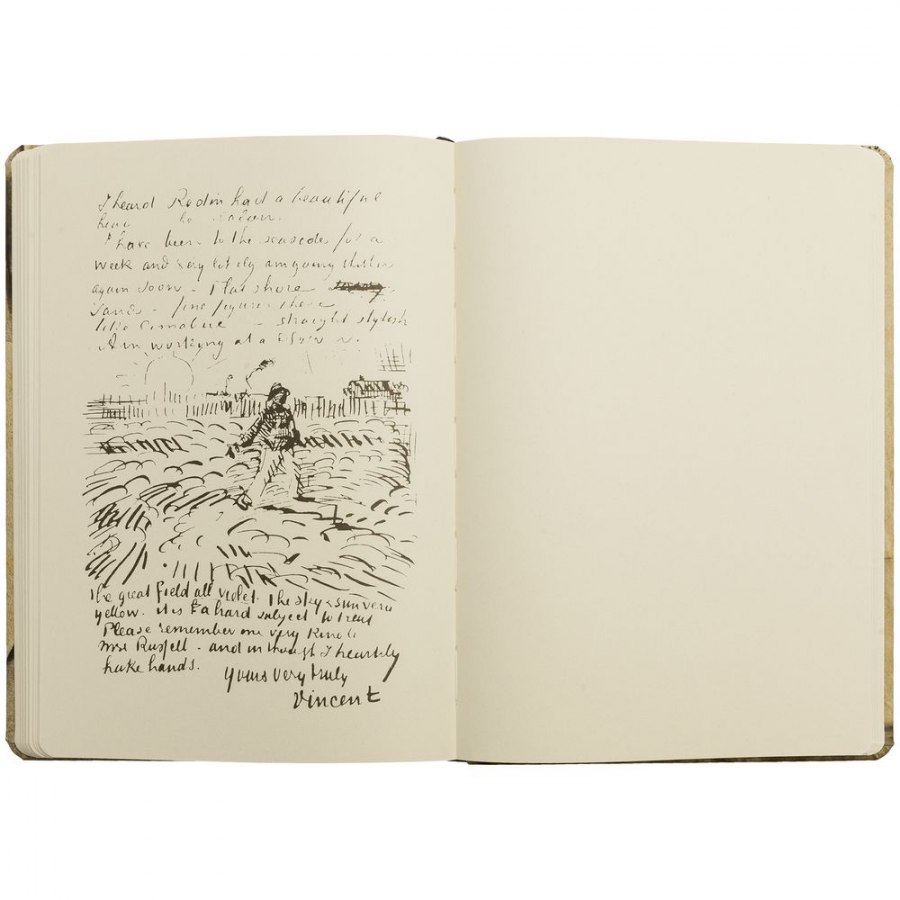 I heard Rodin had a beautiful
head
I have been to the seaside for a
week and very likely am going thither
again soon - Flat shore
Sands - fine figures there
like Cimabue - straight stylish
Am working at a Sower.
The great field all violet. The sky & sun very
yellow. it is a hard subject to treat
Please remember me very kindly
Mrs Russell - and in thought I heartily
hake hands.
yours very truly
Vincent